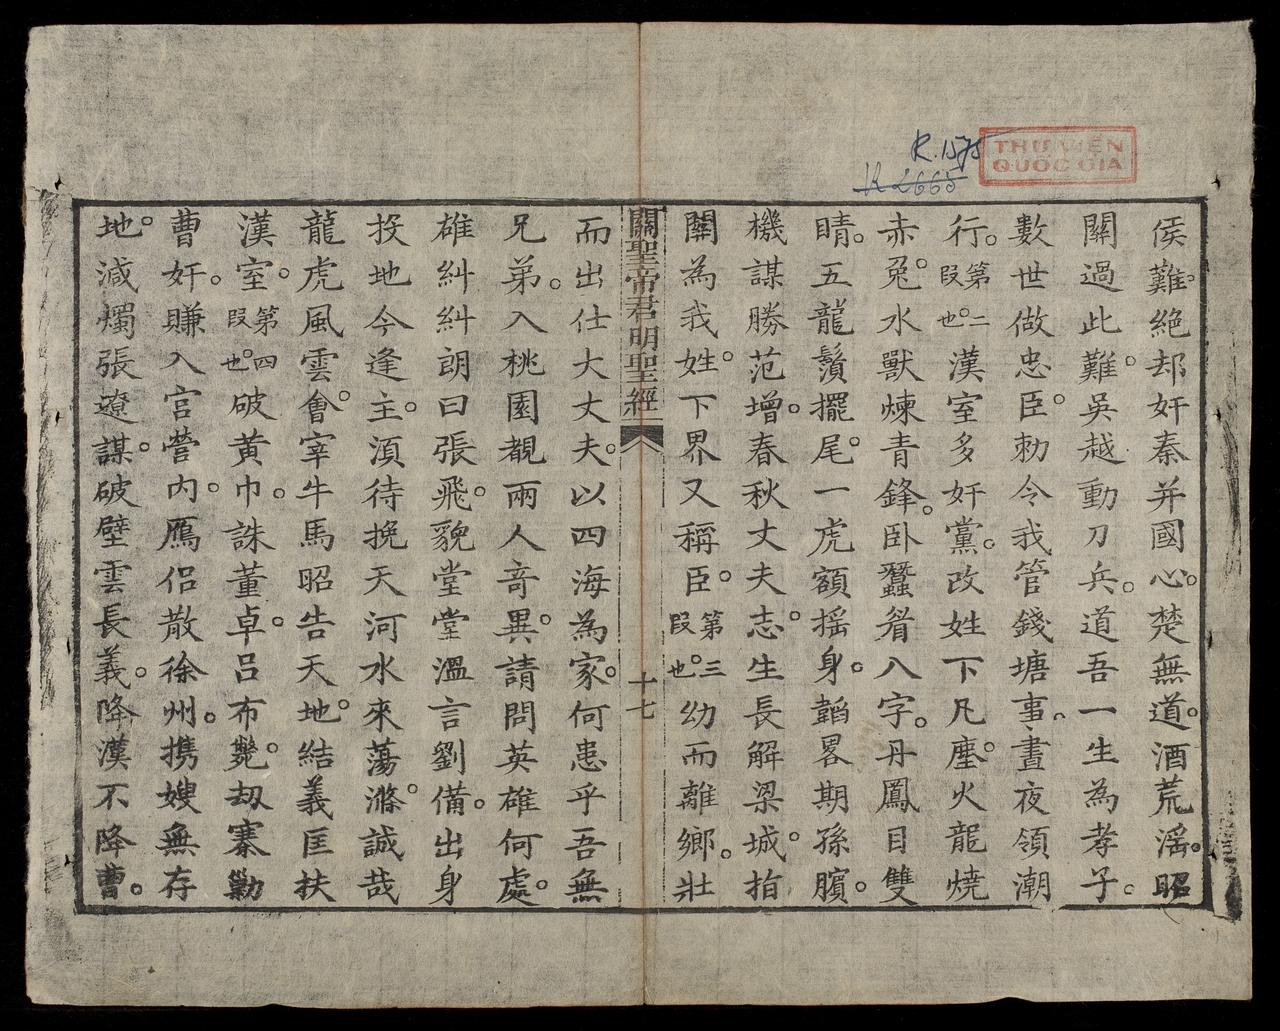 R.1575
R 2665
THƯ VIỆN
QUOC GIA
侯難。絶却奸秦并國心。楚無道。酒荒滛。昭
關過此難。吳越動刀兵。道吾一生為孝子。
數世做忠臣。勅令我管錢塘事。晝夜領潮
行。第二叚也。漢室多奸黨。改姓下凡塵。火龍燒
赤兔。水獸煉青鋒。卧蠶眉八字。丹鳳目雙
睛。五龍鬚擺尾。一虎額揺身。韜畧期孫臏。
機謀勝范增。春秋丈夫志。生長解梁城。指
關為我姓。下界又稱臣。第三叚也。幼而離鄉。壯
關聖帝君明聖經
十七
而出仕大丈夫。以四海為家。何患乎吾無
兄弟。入桃園覩兩人竒異。請問英雄何處。
雄糾糾朗曰張飛。貌堂堂溫言劉備。出身
投地今逢主。湏待挽天河水來蕩滌。誠哉
龍虎風雲會。宰牛馬昭告天地。結義匡扶
漢室。第四叚也。破黄巾。誅董卓。呂布斃。刼寨勦
曹奸。賺入官營内。鴈侣散徐州。携嫂無存
地。減燭張遼謀。破壁雲長義。降漢不降曹。